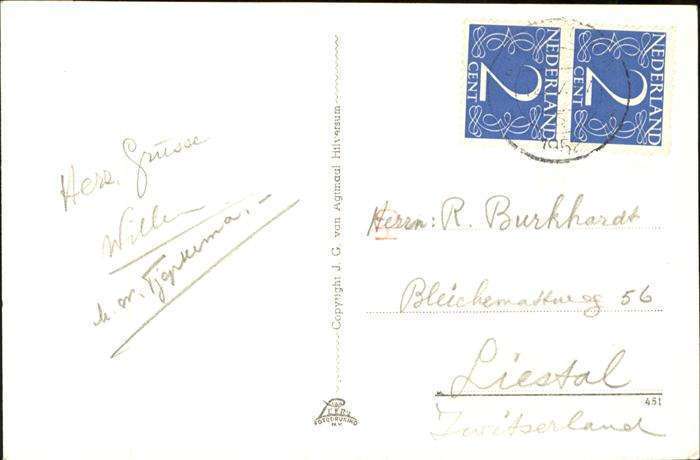 Herz. Grüsse
Willem
Copyright J. G. van Agtmaal Hilversum
NEDERLAND
2
CENT
NEDERLAND
2
CENT
Herrn: R. Burkhardt
Bleichemattweg 56
Liestal
Zwitserland
451